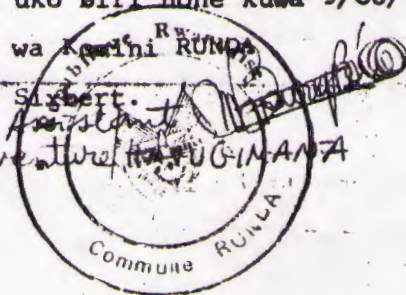 uko biri none kuwa 9/06/
wa Komini RUNDA
Sigbert.
Assistant
venture HAVUGIMANA
Commune RUNDA